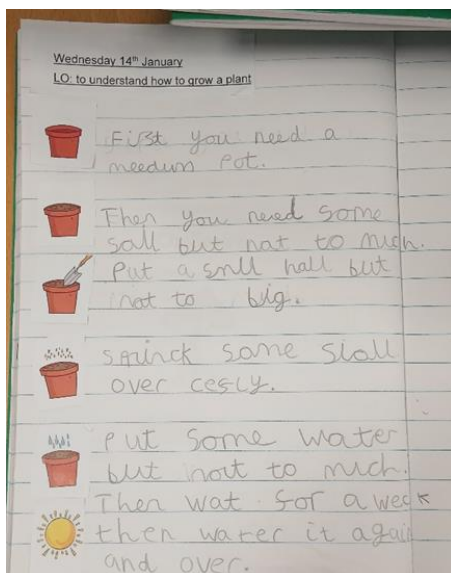 Wednesday 14th January
LO: to understand how to grow a plant
First you need a
meedum pot.
Then you need some
soll but nat to much.
Put a smll hall but
not to big.
some sioll
over cesly.
Put some water
but nout to much.
Then wat for a week
then water it again
and over.